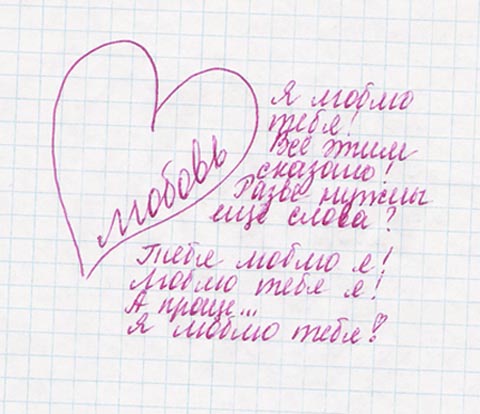 любовь
Я люблю
тебя!
Все этим
сказано!
Разве нужны
еще слова?
Тебя люблю я!
Люблю тебя я!
А проще...
Я люблю тебя!